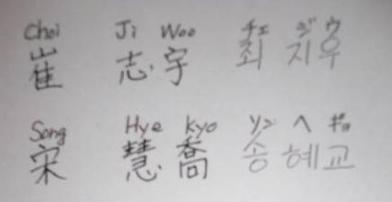 Choi Ji Woo チェ ジ ウ
崔 志 宇 최 지 우
Song Hye kyo ソン ヘ ギョ
宋 慧 喬 송 혜 교